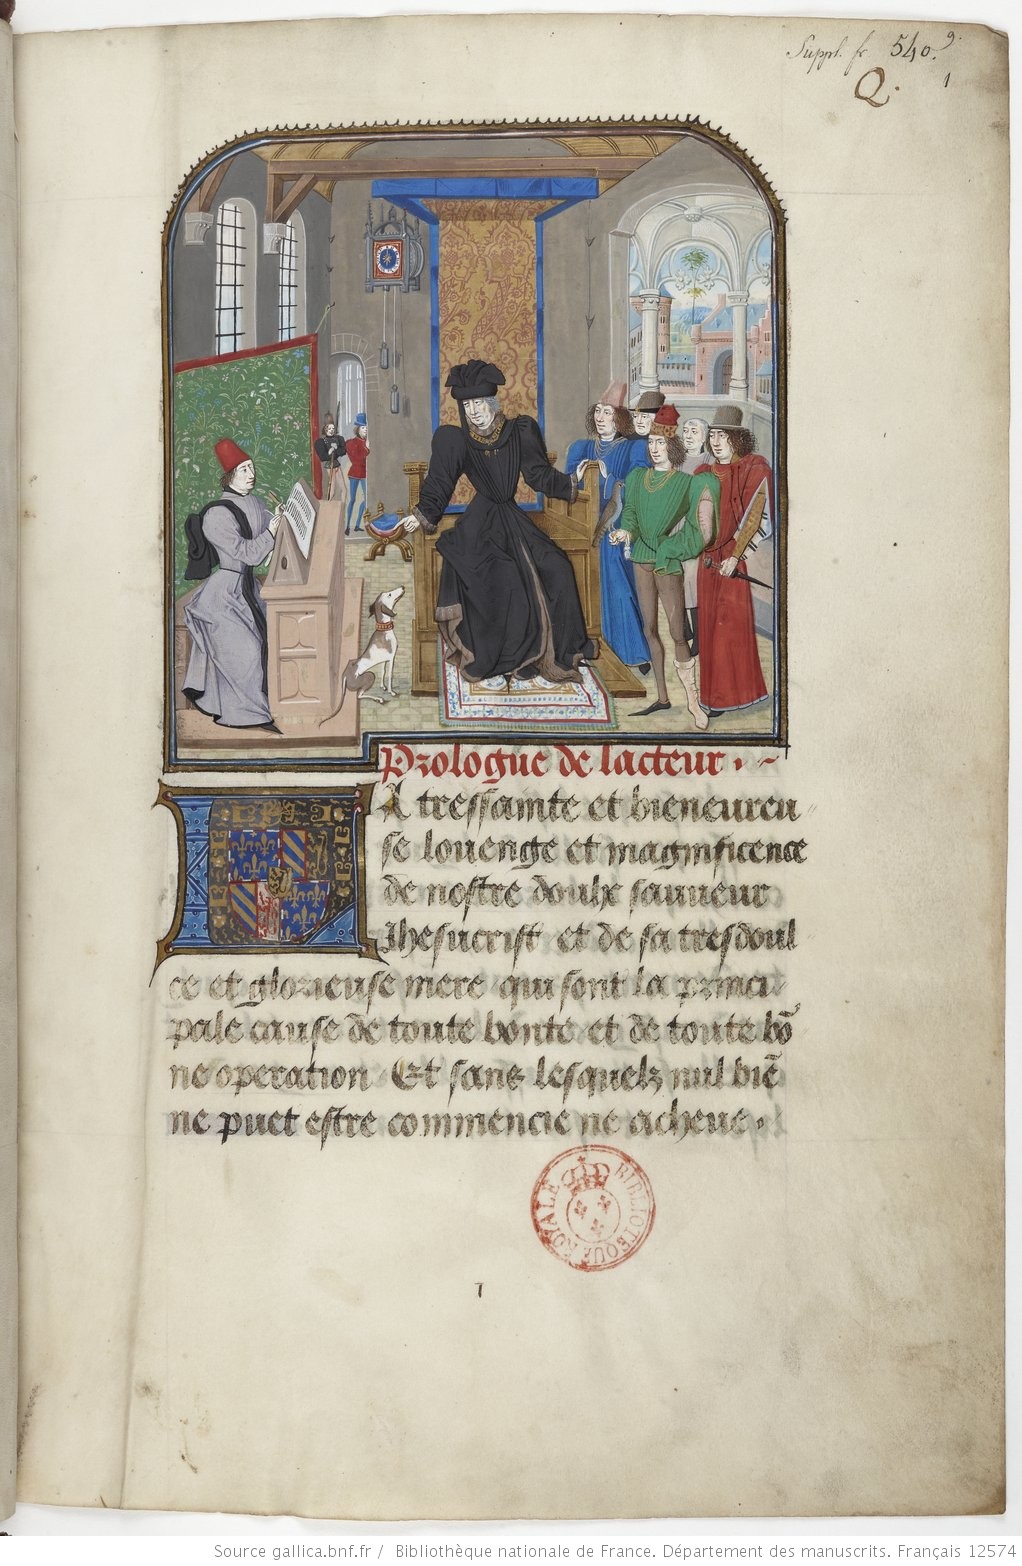 Suppl. fr 540.9.
Q.
1
Prologue de lacteur.
A tressainte et bieneureu
se louenge et magnificence
de nostre doulx sauueur
Ihesucrist et de sa tresdoul
ce et glorieuse mere qui sont la princi
pale cause de toute bonte et de toute bõ
ne operation. Et sans lesquelz nul biẽ
ne puet estre commencie ne acheue.
BIBLIOTHEQUE ROYALE
1
Source gallica.bnf.fr / Bibliothèque nationale de France. Département des manuscrits. Français 12574